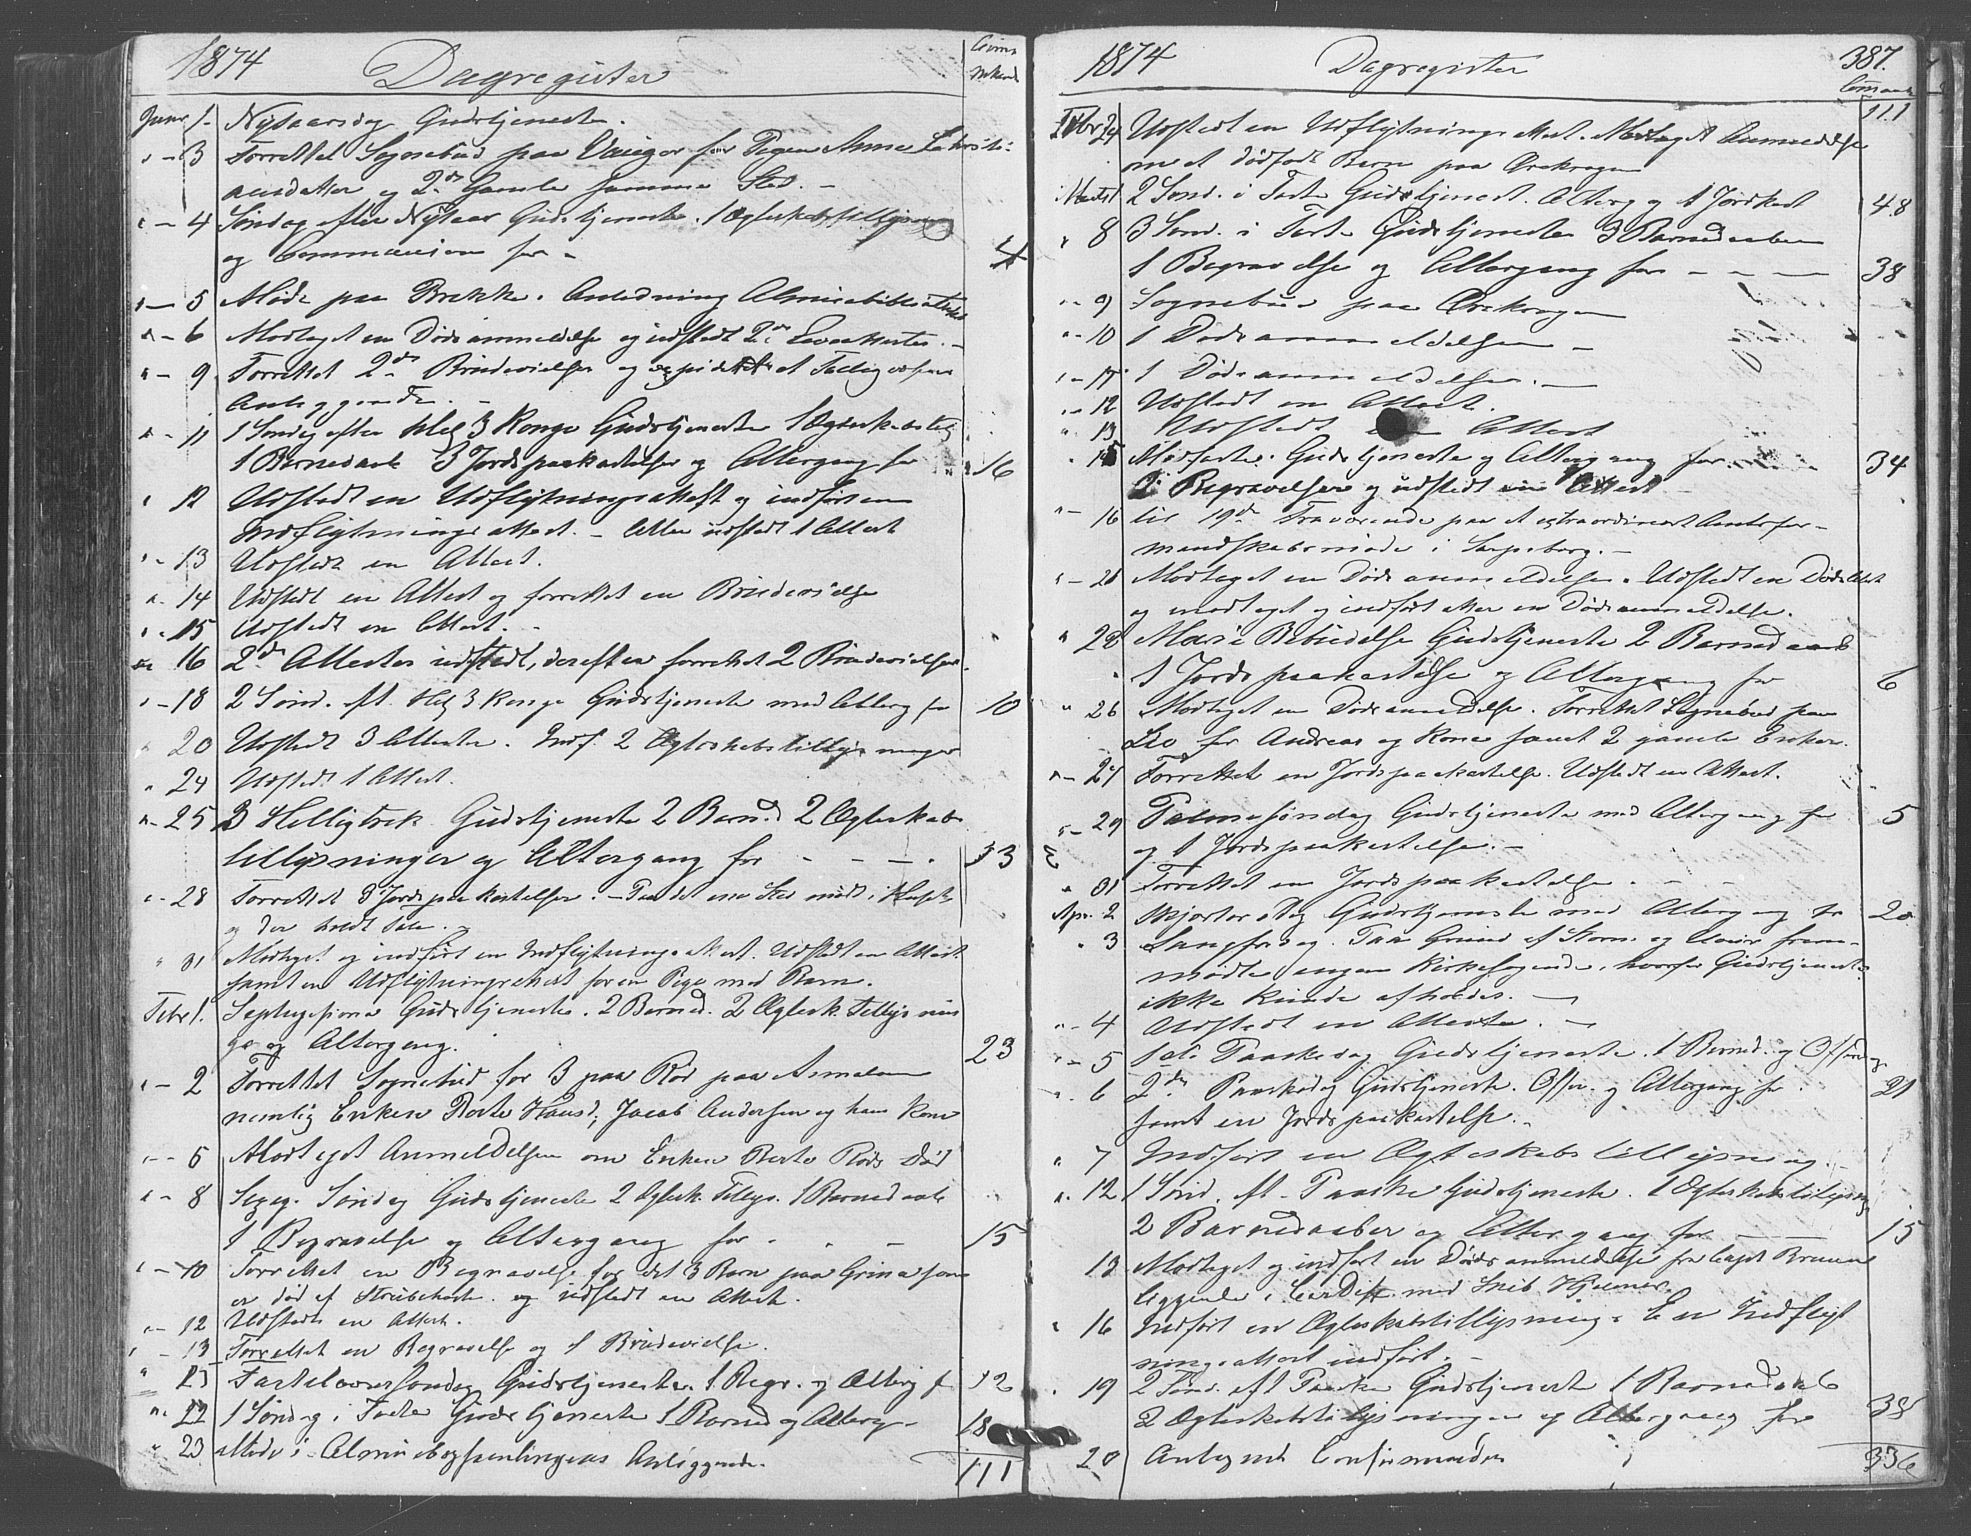 1874 Dagregister Commu
nikanter
Janr 1. Nytaarsdag Gudstjeneste.
" - 3 Forrettet Sognebud paa for Pigen Anne
ansdatter og 2de Gamle samme Sted. -
" - 4 Søndag efter Nytaar Gudstjeneste. 1 Ægteskabstillysning
og Communion for - 4
" - 5 Møde paa Brekke. Anledning
" - 6 Modtaget en Dødsanmeldelse og udstedt 2de
" - 9 Forrettet 2de Brudevielser og et
" - 11 1 Søndag efter Hel. 3 Konge Gudstjeneste 1 Ægteskabstil
1 Barnedaab 3 Jordspaakastelser og Altergang for 16
" 12 Udstedt en Udflytningsattest og indført en
Indflytningsattest. - udstedt 1 Attest
" - 13 Udstedt en Attest.
" - 14 Udstedt en Attest og forrettet en Brudevielse
" - 15 Udstedt en Attest. -
" 16 2de Attester udstedt, derefter forrettet 2 Brudevielser.
" - 18 2 Sønd. eft. Hel 3 Konge Gudstjeneste med Alterg for 10
" 20 Udstedt 3 Attester. Indf. 2 Ægteskabstillysninger
" 24 Udstedt 1 Attest.
" - 25 3 S. Helligtrek. Gudstjeneste 2 Barned 2 Ægteskabs
tillysninger og Altergang for - - - . 13
" - 28 Forrettet 3 Jordspaakastelser. -
og der holdt Tale.
" 31 Modtaget og indført en Indflytningsattest. Udstedt en Attest
samt en Udflytningsattest for en Pige med Barn.
Febr 1. Septuagesima Gudstjeneste. 2 Barned. 2 Ægtesk. Tillysnin
ger og Altergang. 23
" - 2 Forrettet Sognebud for 3 paa Rød paa
nemlig Enken Berte Hansd, Jacob Andersen og hans Kone
" - 5 Modtaget Anmeldelsen om Enken Berte Røds Død
" - 8 Sexag. Søndag Gudstjeneste 2 Ægtesk. Tillys. 1 Barnedaab
1 Begravelse og Altergang for - - - 15
" - 10 Forrettet en Begravelse for det 3 Barn paa som
er død af Strubehoste. og udstedt en Attest.
" - 12 Udstedt en Attest.
" - 13 Forrettet en Begravelse og 1 Brudevielse.
" 15 Fastelavnssøndag Gudstjeneste. 1 Begr. og Alterg f 12
" 22 1 Søndag i Faste Gudstjeneste 1 Barned og Alterg - 18
" 23 Møde i Anliggende.
111
1874 Dagregister 387.
Febr 24 Udstedt en Udflytningsattest. Modtaget Anmeldelse 111
om et dødfødt Barn paa Ørekrogen
Marts 1 2 Sønd. i Faste Gudstjenest. Alterg og 1 Jordkast 48
" 8 3 Sønd. i Faste Gudstjeneste 3 Barnedaaben
1 Begravelse og Altergang for - - - 38
" - 9 Sognebud paa Ørekrogen
" - 10 1 Dødsanmeldelse -
" - 11 1 Dødsanmeldelse. -
" - 12 Udstedt en Attest.
" 13 Udstedt Attest
" 15 Midfaste. Gudstjeneste og Altergang for 34
2 Begravelser og udstedt en Attest
" - 16 til 19de Fraværende paa et extraordinært Amtsfor-
mandskabsmøde i Sarpsborg. -
" - 20 Modtaget en Dødsanmeldelse. Udstedt en
og modtaget og indført atter en Dødsanmeldelse.
" 22 Mariæ Bebudelse Gudstjeneste 2 Barnedaab
1 Jordspaakastelse og Altergang for 6
" 26 Modtaget en Dødsanmeldelse. Forrettet Sognebud paa
for Andreas og Kone samt 2 gamle Enker.
" - 27 Forrettet en Jordspaakastelse. Udstedt en Attest.
" - 29 Palmesøndag Gudstjeneste med Altergang for 5
og 1 Jordspaakastelse. -
" 31 Forrettet en Jordspaakastelse. - -
Apr. 2 Skjærtorsdag Gudstjeneste med Altergang for 20
" 3 Langfredag. Paa Grund af Storm og frem-
mødte ingen Kirkesøgende, hvorfor Gudstjeneste
ikke kunde afholdes. -
" - 4 Udstedt en Atteste. -
" - 5 1ste Paaskedag Gudstjeneste. 1 Barned. og
" 6 2den Paaskedag Gudstjeneste. Offer. og Altergang for 21
samt en Jordspaakastelse. -
" 7 Indført en Ægteskabstillysning
" 12 1 Sønd. eft. Paaske Gudstjeneste. 1 Ægteskabstillysning
2 Barnedaaber og Altergang for - - 15
13 Modtaget og indført en Dødsanmeldelse fra Capt
liggende i Cardiff med Skib Hjalmar.
" 16 Indført en Ægteskabstillysning. En Indflyt
ningsattest indført. -
" 19 2 Sønd. eft Paaske Gudstjeneste 1 Barnedaab
2 Ægteskabstillysninger og Altergang for 38
20 Antegnet Confirmander 336